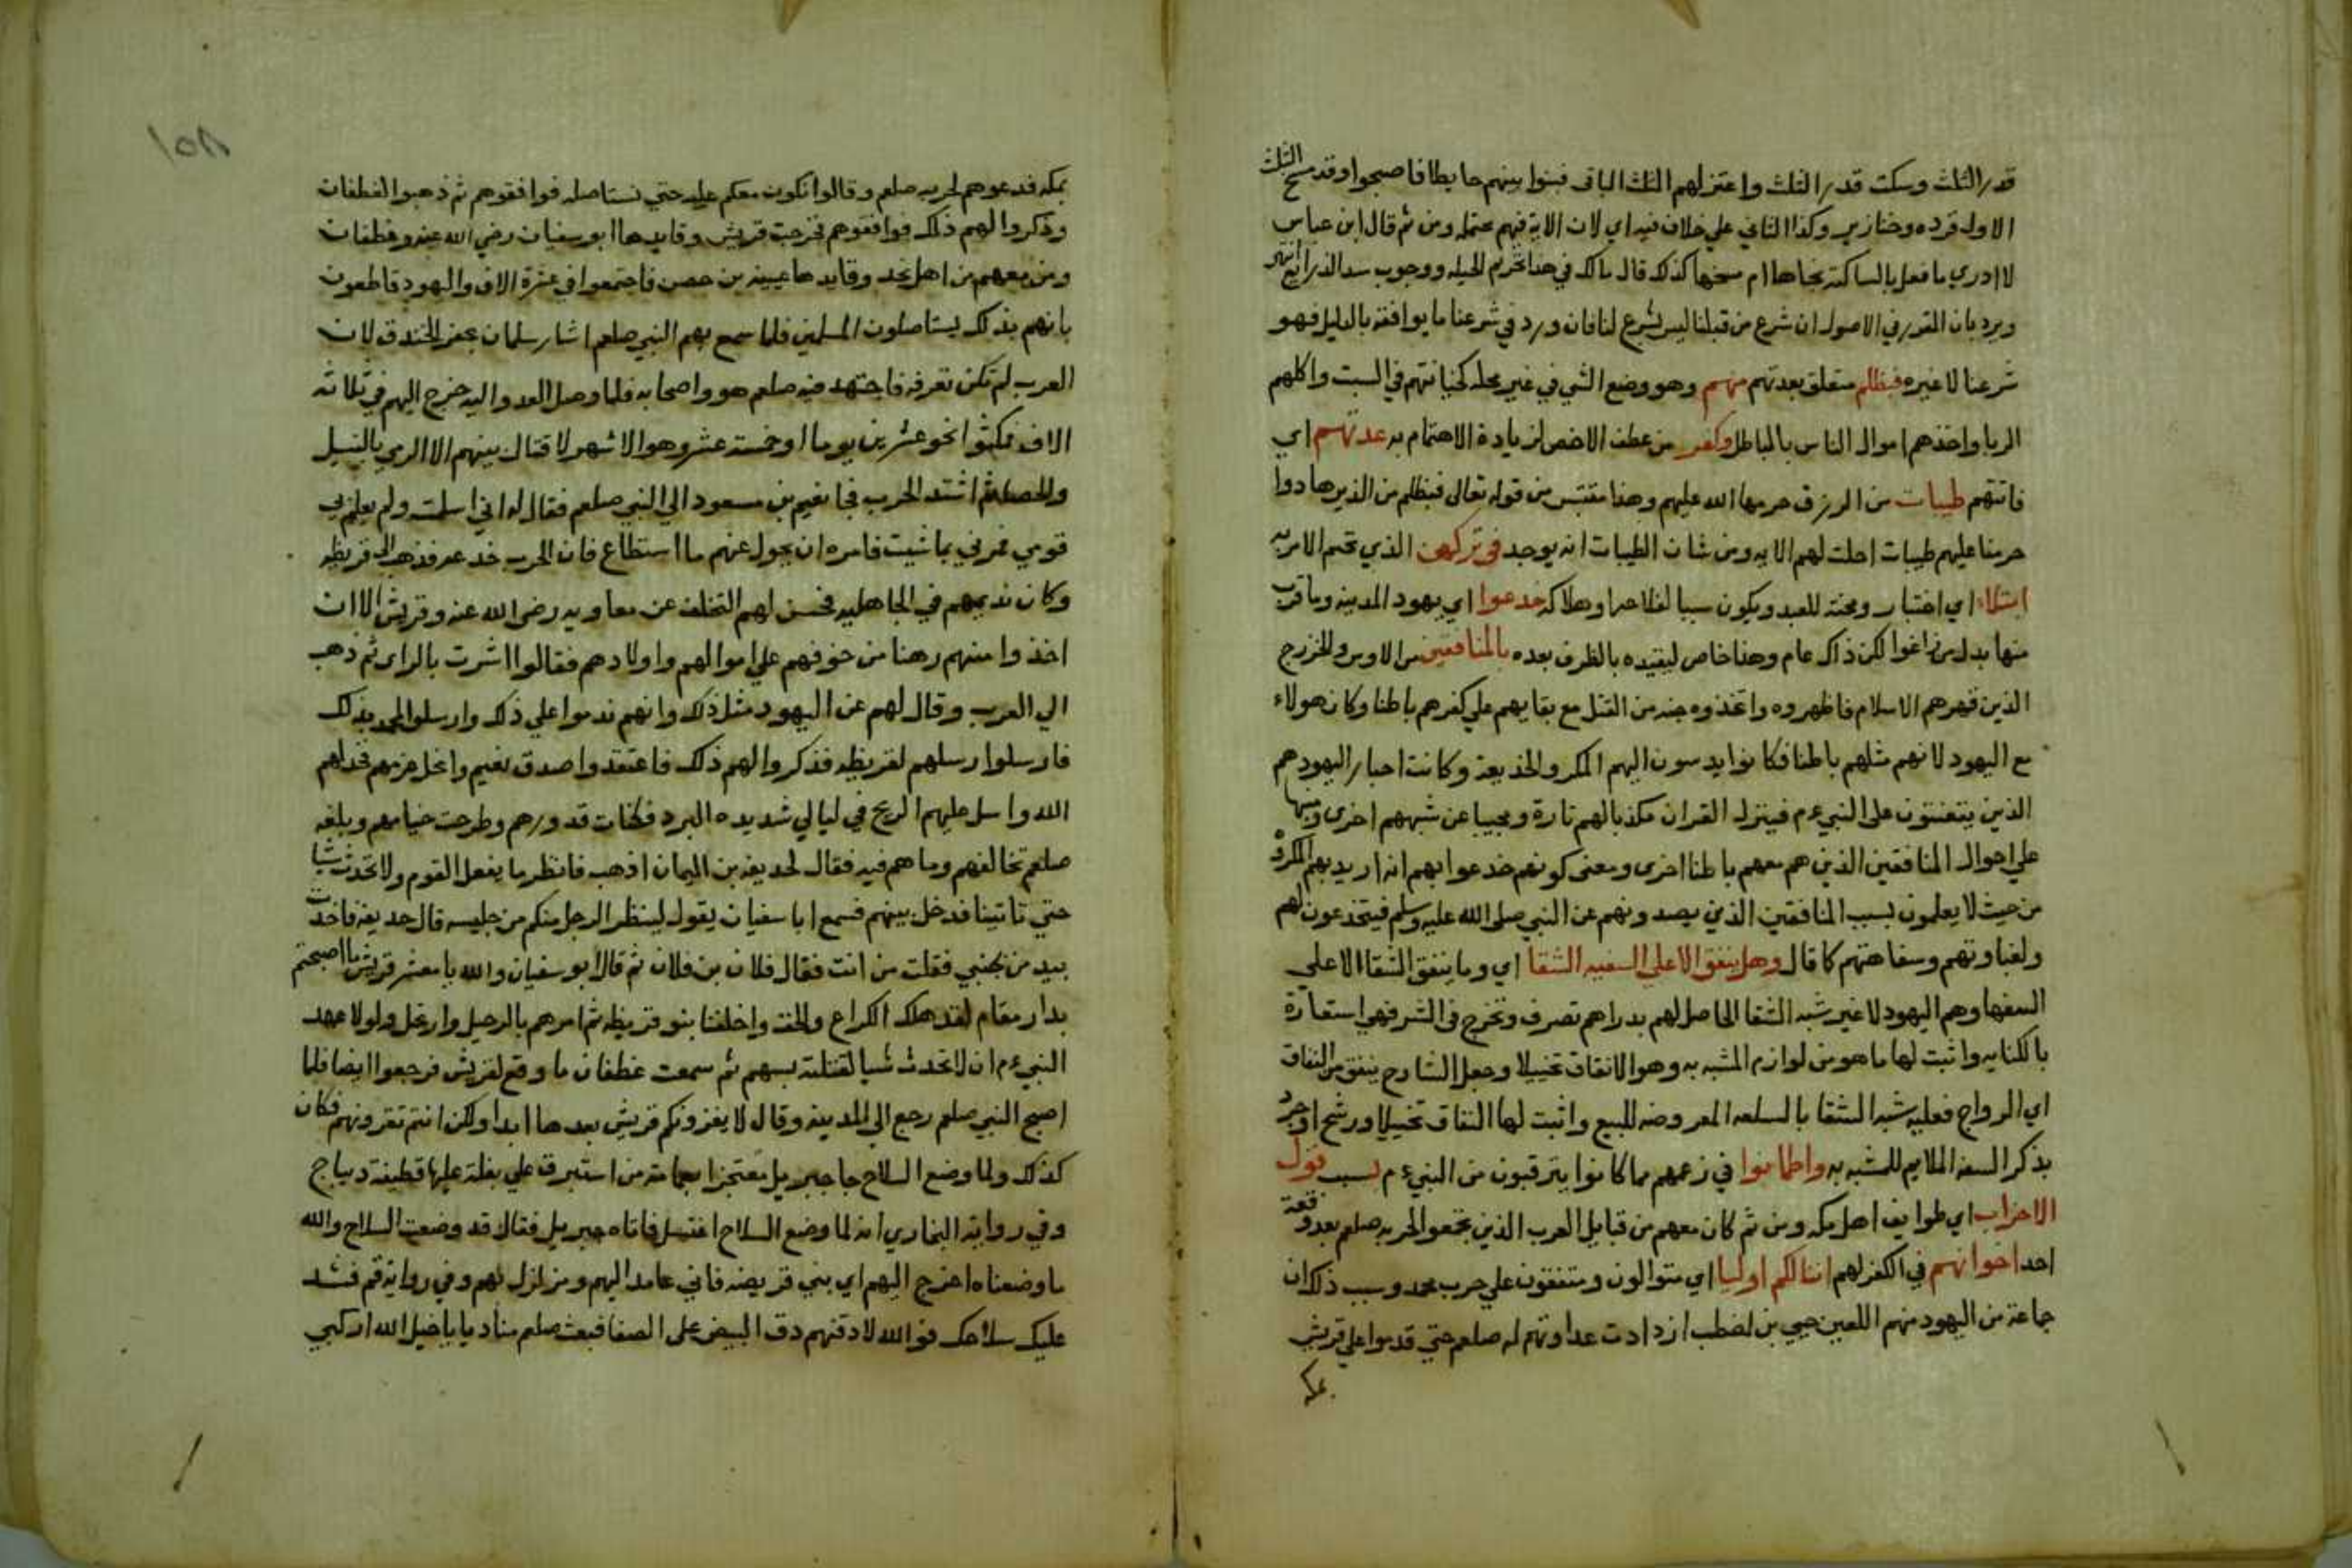 قدر الثلث وسكت قدر الثلث واعتزلهم الثلث الباقى فبنوا بينهم حايطا فاصبحوا وقد مسخ الثلث
الاول قرده وخنازير وكذا الثاني علي خلاف فيه اي لان الاية فيهم محتمله ومن ثم قال ابن عباس
لا ادري ما فعل بالساكتة نجاها ام مسخها كذلك قال مالك في هذا تحريم الحيله ووجوب سد الذرايع انتهى
ويرد بان المقرر في الاصول ان شرع من قبلنا ليس بشرع لنا فان ورد في شرعنا ما يوافقه بالدليل فهو
شرعنا لا غيره فبظلم متعلق بعدتهم منهم وهو وضع الشي في غير محله كخيانتهم في السبت واكلهم
الربا واخذهم اموال الناس بالباطل وكفر من عطف الاخص لزيادة الاهتمام به عدتهم اي
فاتتهم طيبات من الرزق حرمها الله عليهم وهذا مقتبس من قوله تعالى فبظلم من الذين هادوا
حرمنا عليهم طيبات احلت لهم الايه ومن شان الطيبات انه يوجد في تركهن الذي تحتم الامر به
ابتلاء اي اختبار ومحنة للعبد ويكون سببا لفلاحه او هلاكه خدعوا اي يهود المدينه وما قرب
منها بدل من زاغوا لكن ذاك عام وهنا خاص ليقيده بالظرف بعده بالمنافقين من الاوس والخزرج
الذين قهرهم الاسلام فاظهروه واتخذوه جنه من القتل مع بقايهم علي كفرهم باطنا وكان هولاء
مع اليهود لانهم مثلهم باطنا فكانوا يدسون اليهم المكر والخديعة وكانت احبار اليهود هم
الذين يتعنتون على النبيءم فينزل القران مكذبا لهم تارة ومجيبا عن شبههم اخرى ومنبها
علي احوال المنافقين الذين هم معهم باطنا اخرى ومعنى كونهم خدعوا بهم انه اريد بهم المكروه
من حيث لا يعلمون بسبب المنافقين الذين يصدونهم عن النبي صلى الله عليه وسلم فينخدعون لهم
ولغباوتهم وسفاهتهم كما قال وهل ينفق الا علي السفيه الشقا اي وما ينفق الشقا الا علي
السفها وهم اليهود لا غير شبه الشقا الحاصل لهم بدراهم تصرف وتخرج في الشر فهي استعارة
بالكنايه واثبت لها ما هو من لوازم المشبه به وهو الانفاق تخييلا وجعل الشارح ينفق من النفاق
اي الرواج فعليه شبه الشقا بالسلعه المعروضه للبيع واثبت لها النفاق تخييلا ورشح او جرد
بذكر السفه الملايم للمشبه به واطمانوا في زعمهم مما كانوا يترقبون من النبيءم بسبب قول
الاحزاب اي طوايف اهل مكه ومن ثم كان معهم من قبايل العرب الذين تجمعوا لحربه صلعم بعد وقعة
احد اخوانهم في الكفر لهم اننا لكم اوليا اي متوالون ومتفقون علي حرب محمد وسبب ذلك ان
جماعة من اليهود منهم اللعين حيي بن اخطب ازدادت عداوتهم له صلعم حتي قدموا على قريش
بمكه
١٥٨
بمكه فدعوهم لحربه صلعم وقالوا نكون معكم عليه حتي نستاصله فوافقوهم ثم ذهبوا لغطفان
وذكروا لهم ذلك فوافقوهم فخرجت قريش وقايدها ابو سفيان رضي الله عنه وغطفان
ومن معهم من اهل نجد وقايدها عيينه بن حصن فاجتمعوا في عشرة الاف واليهود قاطعون
بانهم بذلك يستاصلون المسلمين فلما سمع بهم النبي صلعم اشار سلمان بحفر الخندق لان
العرب لم تكن تعرفه فاجتهد فيه صلعم هو واصحابه فلما وصل العدو اليه خرج اليهم في ثلاثه
الاف فمكثوا نحو عشرين يوما او خمسة عشر وهو الاشهر لا قتال بينهم الا الرمي بالنبل
والحصا ثم اشتد الحرب فجا نعيم بن مسعود الي النبي صلعم فقال له اني اسلمت ولم يعلم بي
قومي فمرني بما شيت فامره ان يحول عنهم ما استطاع فان الحرب خدعه فذهب الى قريظه
وكان نديمهم في الجاهليه فحسن لهم التخلف عن معاويه رضى الله عنه وقريش الا ان
اخذوا منهم رهنا من خوفهم علي اموالهم واولادهم فقالوا اشرت بالراى ثم ذهب
الي العرب وقال لهم عن اليهود مثل ذلك وانهم ندموا علي ذلك وارسلوا لمحمد بذلك
فارسلوا رسلهم لقريظه فذكروا لهم ذلك فاعتقدوا صدق نعيم وانحل عزمهم فخذلهم
الله وارسل عليهم الريح في ليالي شديده البرد فكفات قدورهم وطرحت خيامهم وبلغه
صلعم تخالفهم وما هم فيه فقال لحذيفه بن اليمان اذهب فانظر ما يفعل القوم ولا تحدث شيا
حتي تاتينا فدخل بينهم فسمع ابا سفيان يقول لينظر الرجل منكم من جليسه قال حذيفه فاخذت
بيد من بجنبي فقلت من انت فقال فلان بن فلان ثم قال ابو سفيان والله يا معشر قريش ما اصبحتم
بدار مقام لقد هلك الكراع والخف واخلفنا بنو قريظه ثم امرهم بالرحيل وارتحل ولولا عهد
النبيءم ان لا تحدث شيا لقتلته بسهم ثم سمعت غطفان ما وقع لقريش فرجعوا ايضا فلما
اصبح النبي صلعم رجع الى المدينه وقال لا يغزونكم قريش بعدها ابدا ولكن انتم تغزونهم فكان
كذلك ولما وضع السلاح جا جبريل معتجزا بعمامة من استبرق علي بغلة عليها قطيفة ديباج
وفي رواية البخاري انه لما وضع السلاح اغتسل فاتاه جبريل فقال قد وضعت السلاح والله
ما وضعناه اخرج اليهم اي بني قريضه فاني عامد اليهم ومزلزل لهم وفي رواية قم فشد
عليك سلاحك فوالله لادقنهم دق البيض على الصفا فبعث صلعم مناديا يا خيل الله اركبي